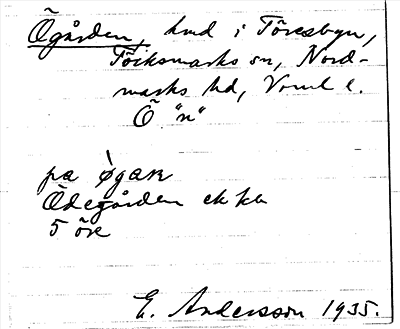 Ögården, hmd i Töresbyn,
Töcksmarks sn, Nord-
marks hd, Vrml l.
Ö "n"
pa ø̀gaɴ
Ödegården ek kb
5 öre
E. Andersson 1935.